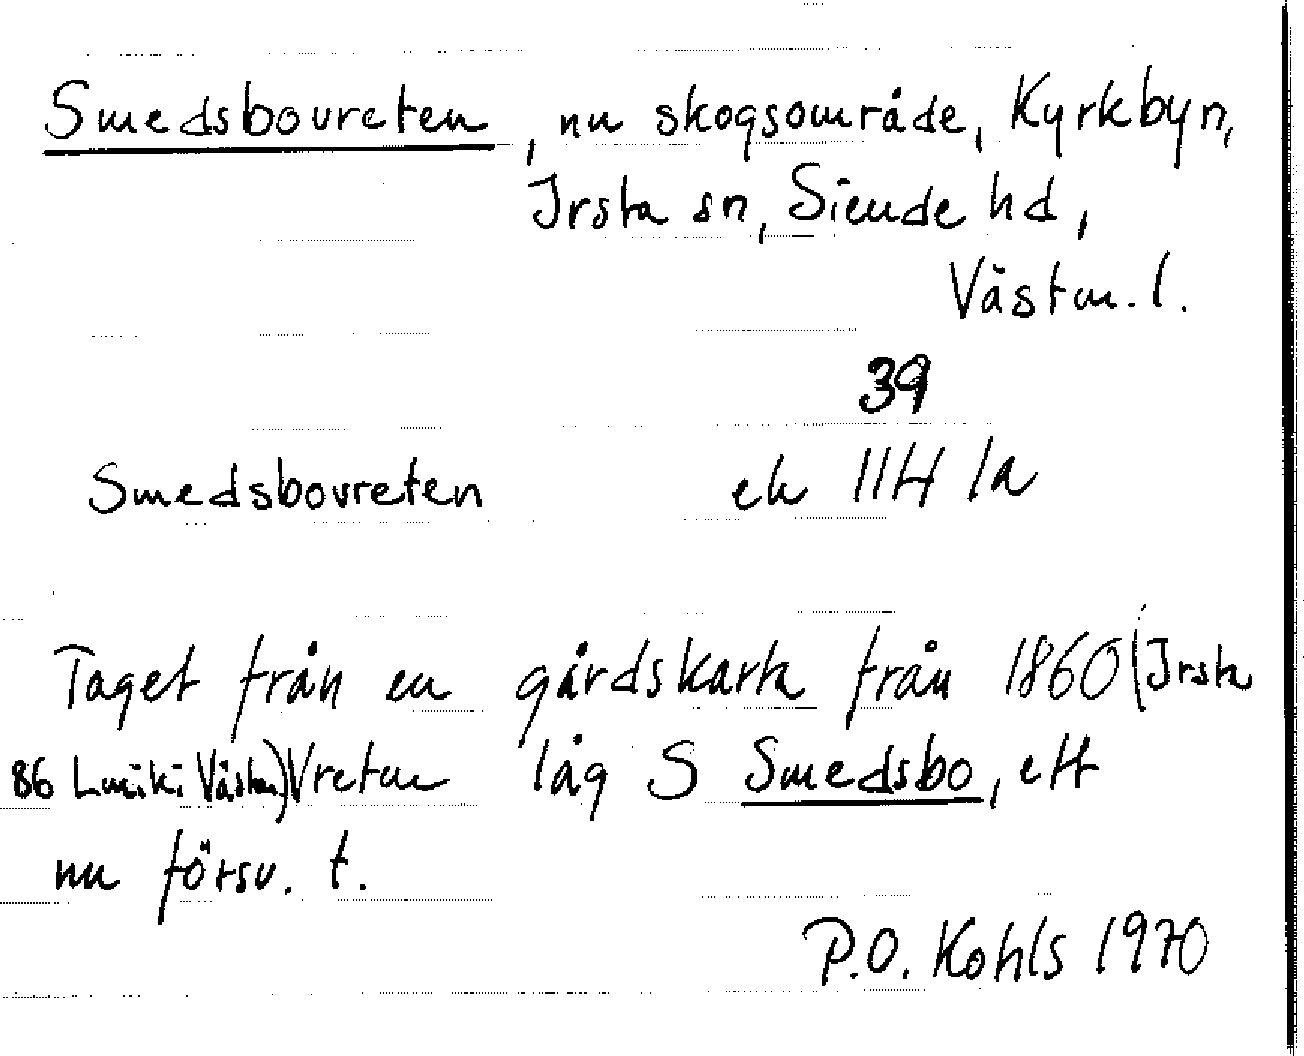 Smedsbovreten, nu skogsområde, Kyrkbyn,
Irsta sn, Siende hd,
Västm. l.
39
Smedsbovreten ek 11H 1a
Taget från en gårdskarta från 1860 (Irsta
86 Lmiki Västm) Vreten låg S Smedsbo, ett
nu försv. t.
P.O. Kohls 1970